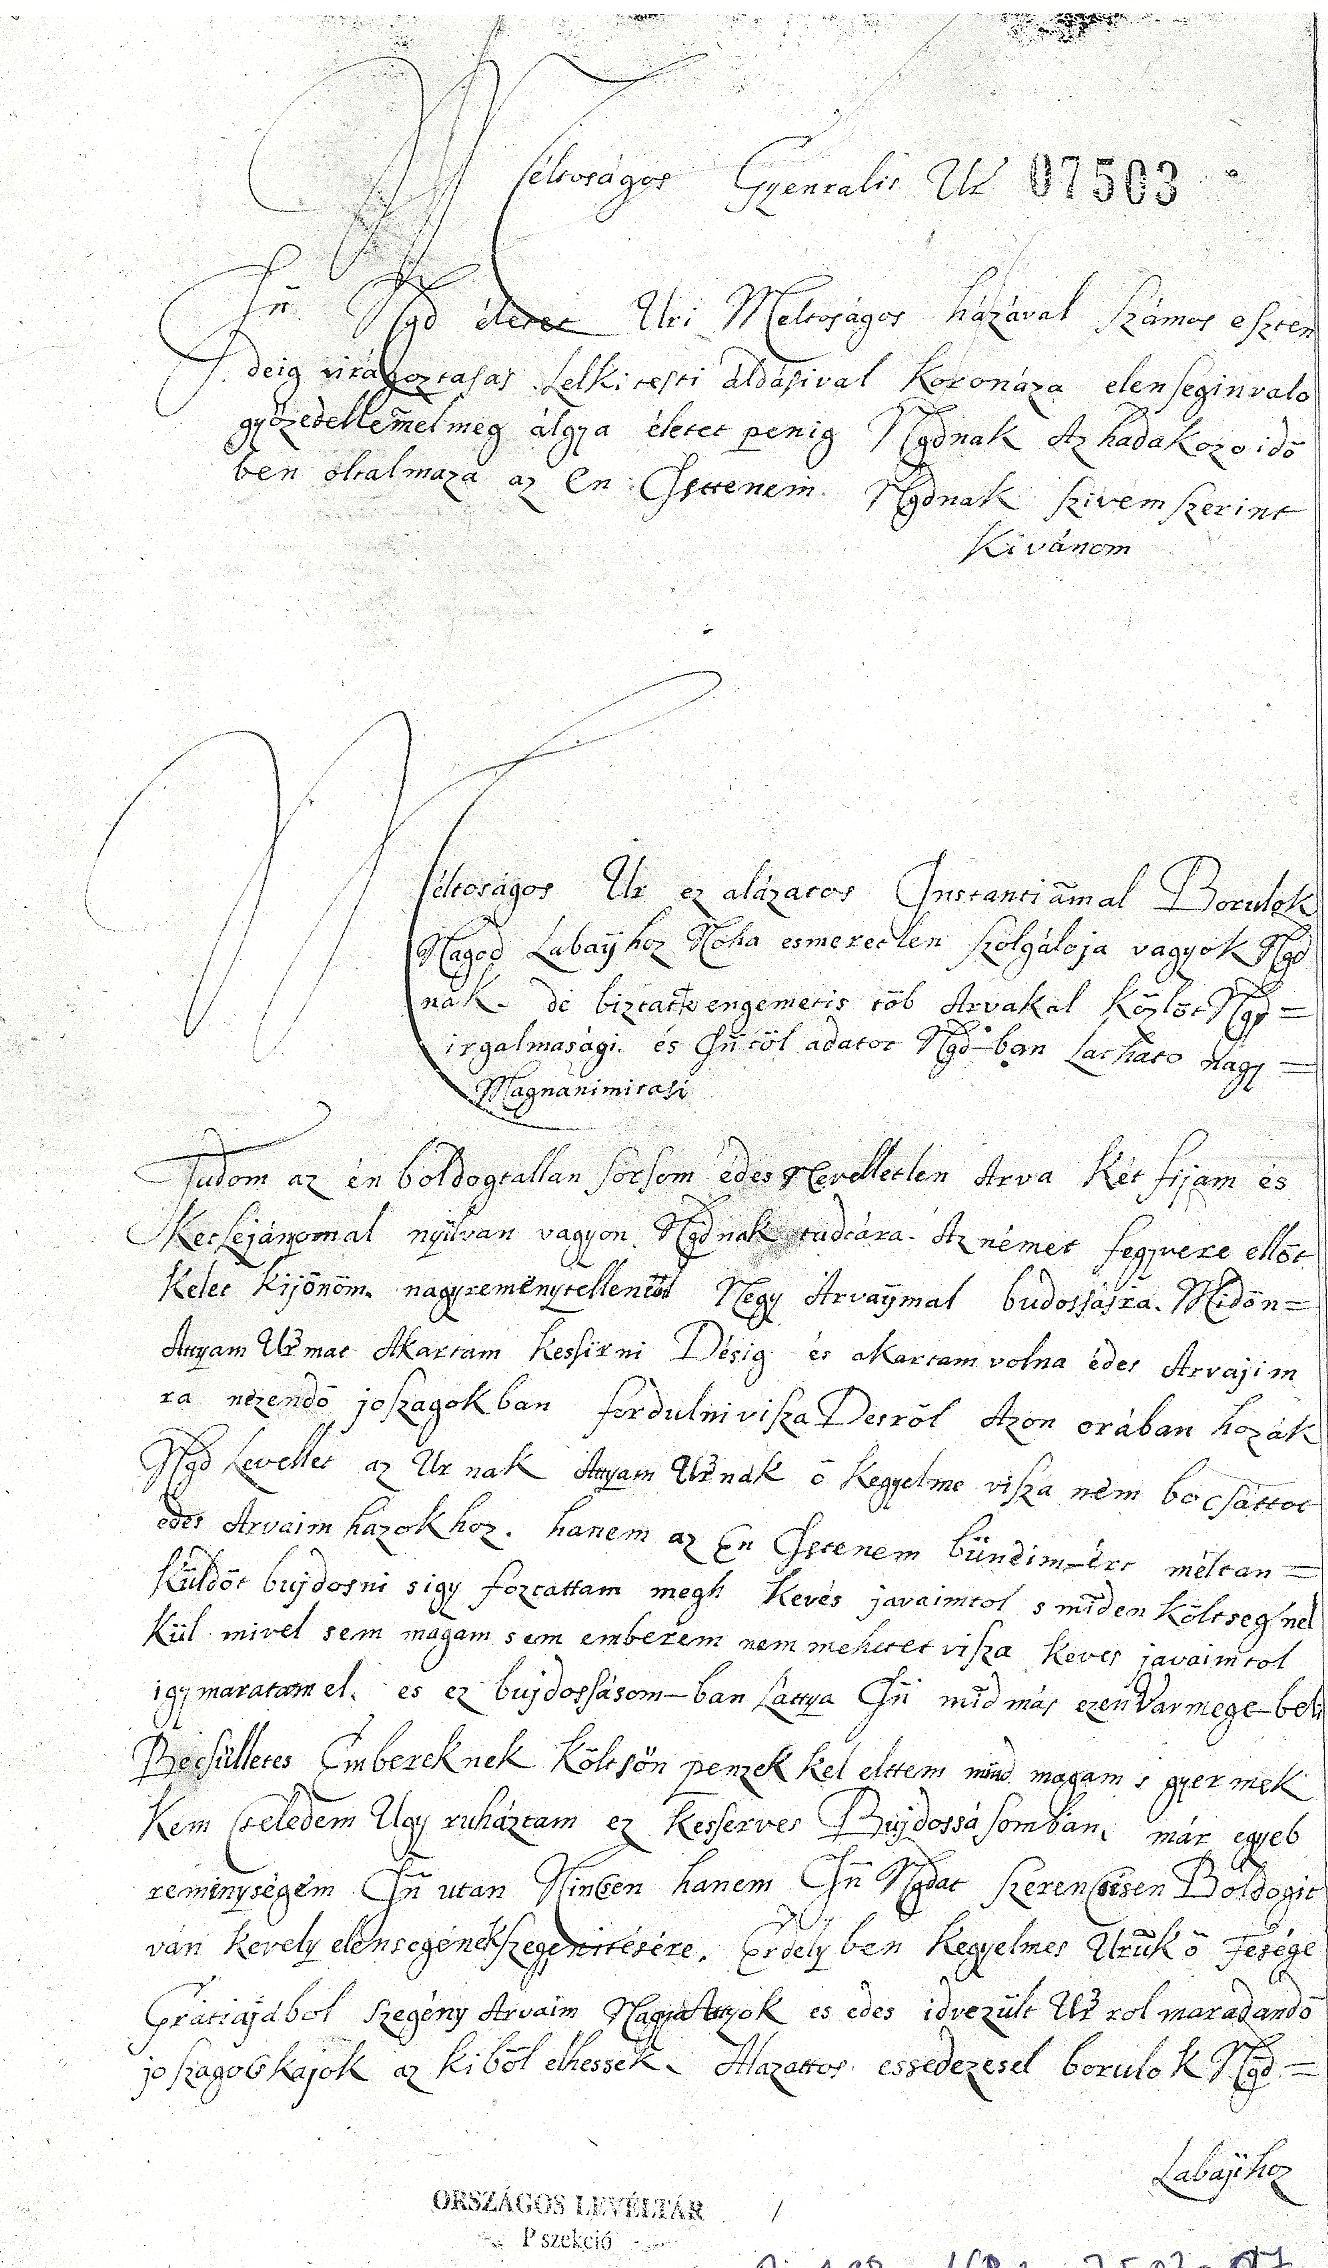 Méltoságos Gyenralis Ur 07503
Jn̄ Ngd életet Uri Meltoságos házával számos eszten
deig virágoztasas Lelki testi áldásival koronáza elenseginvalo
győzedellem̄el meg álgya életet penig Ngdnak Az hadakozo idő
ben oltalmaza az En Jsttenem Ngdnak szivem szerint
Kivánom
Méltoságos Ur ez alázatos Jnstantiām̄al Borulok
Nagod Labaÿhoz Noha esmeretlen szolgáloja vagyok Ngd
nak. de biztat engemetis töb Arvakal közlöt Ngd =
irgalmasági és Jn̄töl adatot Ngd-ban Lathato nagy =
Magnanimitasi
Tudom az én boldogtallan sorsom édes Nevelletlen Arva Két fijam és
Ket Lejánÿomal nÿilvan vagyon Ngdnak tudtára. Az német fegyvere ellöt
Kelet kijönöm. nagyreménytellenül Negy Arvaÿmal budossásra. Midőn =
Attyam Ur̄mat Akartam kessirni Désig és akartam volna édes Arvajim
ra nézendő joszagokban fordulni visza Desröl Azon orában hozák
Ngd Levellét az Urnak Attyam Ur̄nak ő kegyelme visza nem bocsáttot
edes Arvaim hazokhoz. hanem az En Jstenem büneim-ért méltan =
Küldöt bujdosni s igy foztattam megh kevés javaimtol s min̄den költseg nel
kül mivel sem magam sem emberem nem mehetet visza keves javaimtol
igy maratam el. es ez bujdossásom-ban Láttya Jn̄ mid̄ más ezen Varmege-beli
Becsülletes Embereknek költsön penzekkel eltem mind magam s gyermek
kem Cseledem Ugy ruháztam ez kesserves Bujdossásomban. már egyeb
reménységem Jn̄ utan Nincsen hanem Jn̄ Ngdat szerencsésen Boldogit
ván kevely elenségének szegenitésére. Erdelyben kegyelmes Urūk ő Fesége
Gratiájábol szegény Arvaim Nagyattyok es edes idvezült Ur̄rol maradandó
joszagocskajok az kiböl elhessek. Alazattos essedezesel borulok Ngd =
Labajihoz
ORSZÁGOS LEVÉLTÁR
P szekció